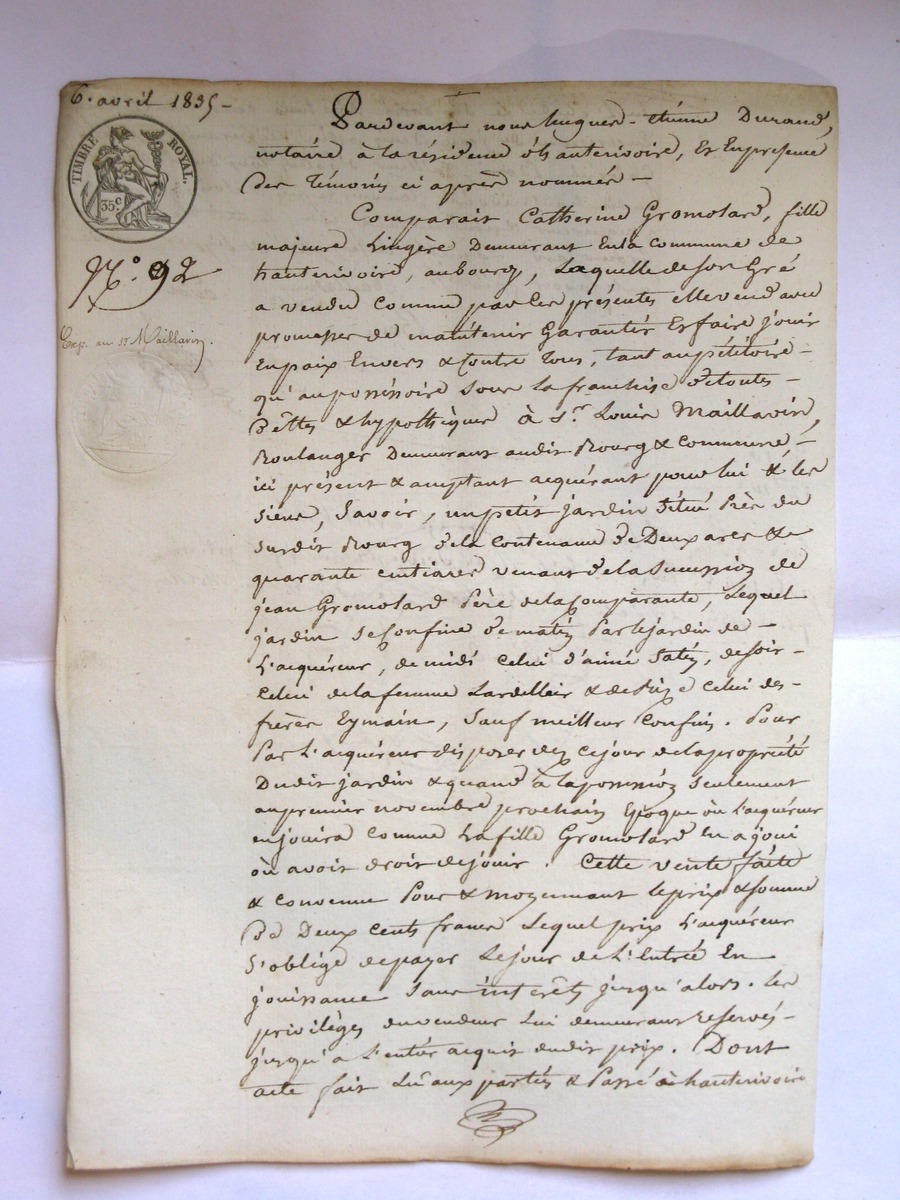 6. avril 1835 -
TIMBRE ROYAL.
35c
N.° 92
Exp. au Sr Maillavin.
Pardevant nous hugues - étienne Durand,
notaire à la résidence d'hauterivoire, Et En presence
des Témoins ci après nommés -
Comparait Catherine Gromolard, fille
majeure Lingère Demeurant En la commune de
hauterivoire, au bourg, Laquelle de son Gré
a vendu comme par les présentes elle vend avec
promesses de maintenir Garantir Et faire jouir
en paix Envers & Contre Tous, tant au pétitoire -
qu'au possessoire sous la franchise de toutes -
Dettes & hypothèques à Sr. Louis Maillavin,
Boulanger Demeurant audit Bourg & commune -
ici présent & acceptant acquérant pour lui & les
siens, Savoir, un petit jardin Situé Près du
susdit Bourg de la contenance de Deux ares &
quarante centiares venant de la succession de
jean Gromolard Père de la Comparante, Lequel
jardin se Confine de matin Par le jardin de -
L'acquéreur, de midi celui d'aimé Satin, de soir -
celui de la femme Lardellier & de bize celui des -
frères Eymain, Sauf meilleur Confin. Pour
Par L'acquéreur disposer dès ce jour de la propriété
Dudit jardin & quand à la possession seulement
au premier novembre prochain Epoque où L'acquéreur
en jouira comme La fille Gromolard En a joui
où avoit droit de jouir. Cette vente faite
& convenue Pour & moyennant le prix & somme
De Deux cents francs Lequel prix L'acquéreur
s'oblige de payer Le jour de L'Entrée En
jouissance sans intérêts jusqu'alors. les
privilèges du vendeur Lui demeurant reservés -
jusqu'a L'entier acquit dudit prix. Dont
acte fait Lu aux parties & Passé à hauterivoire